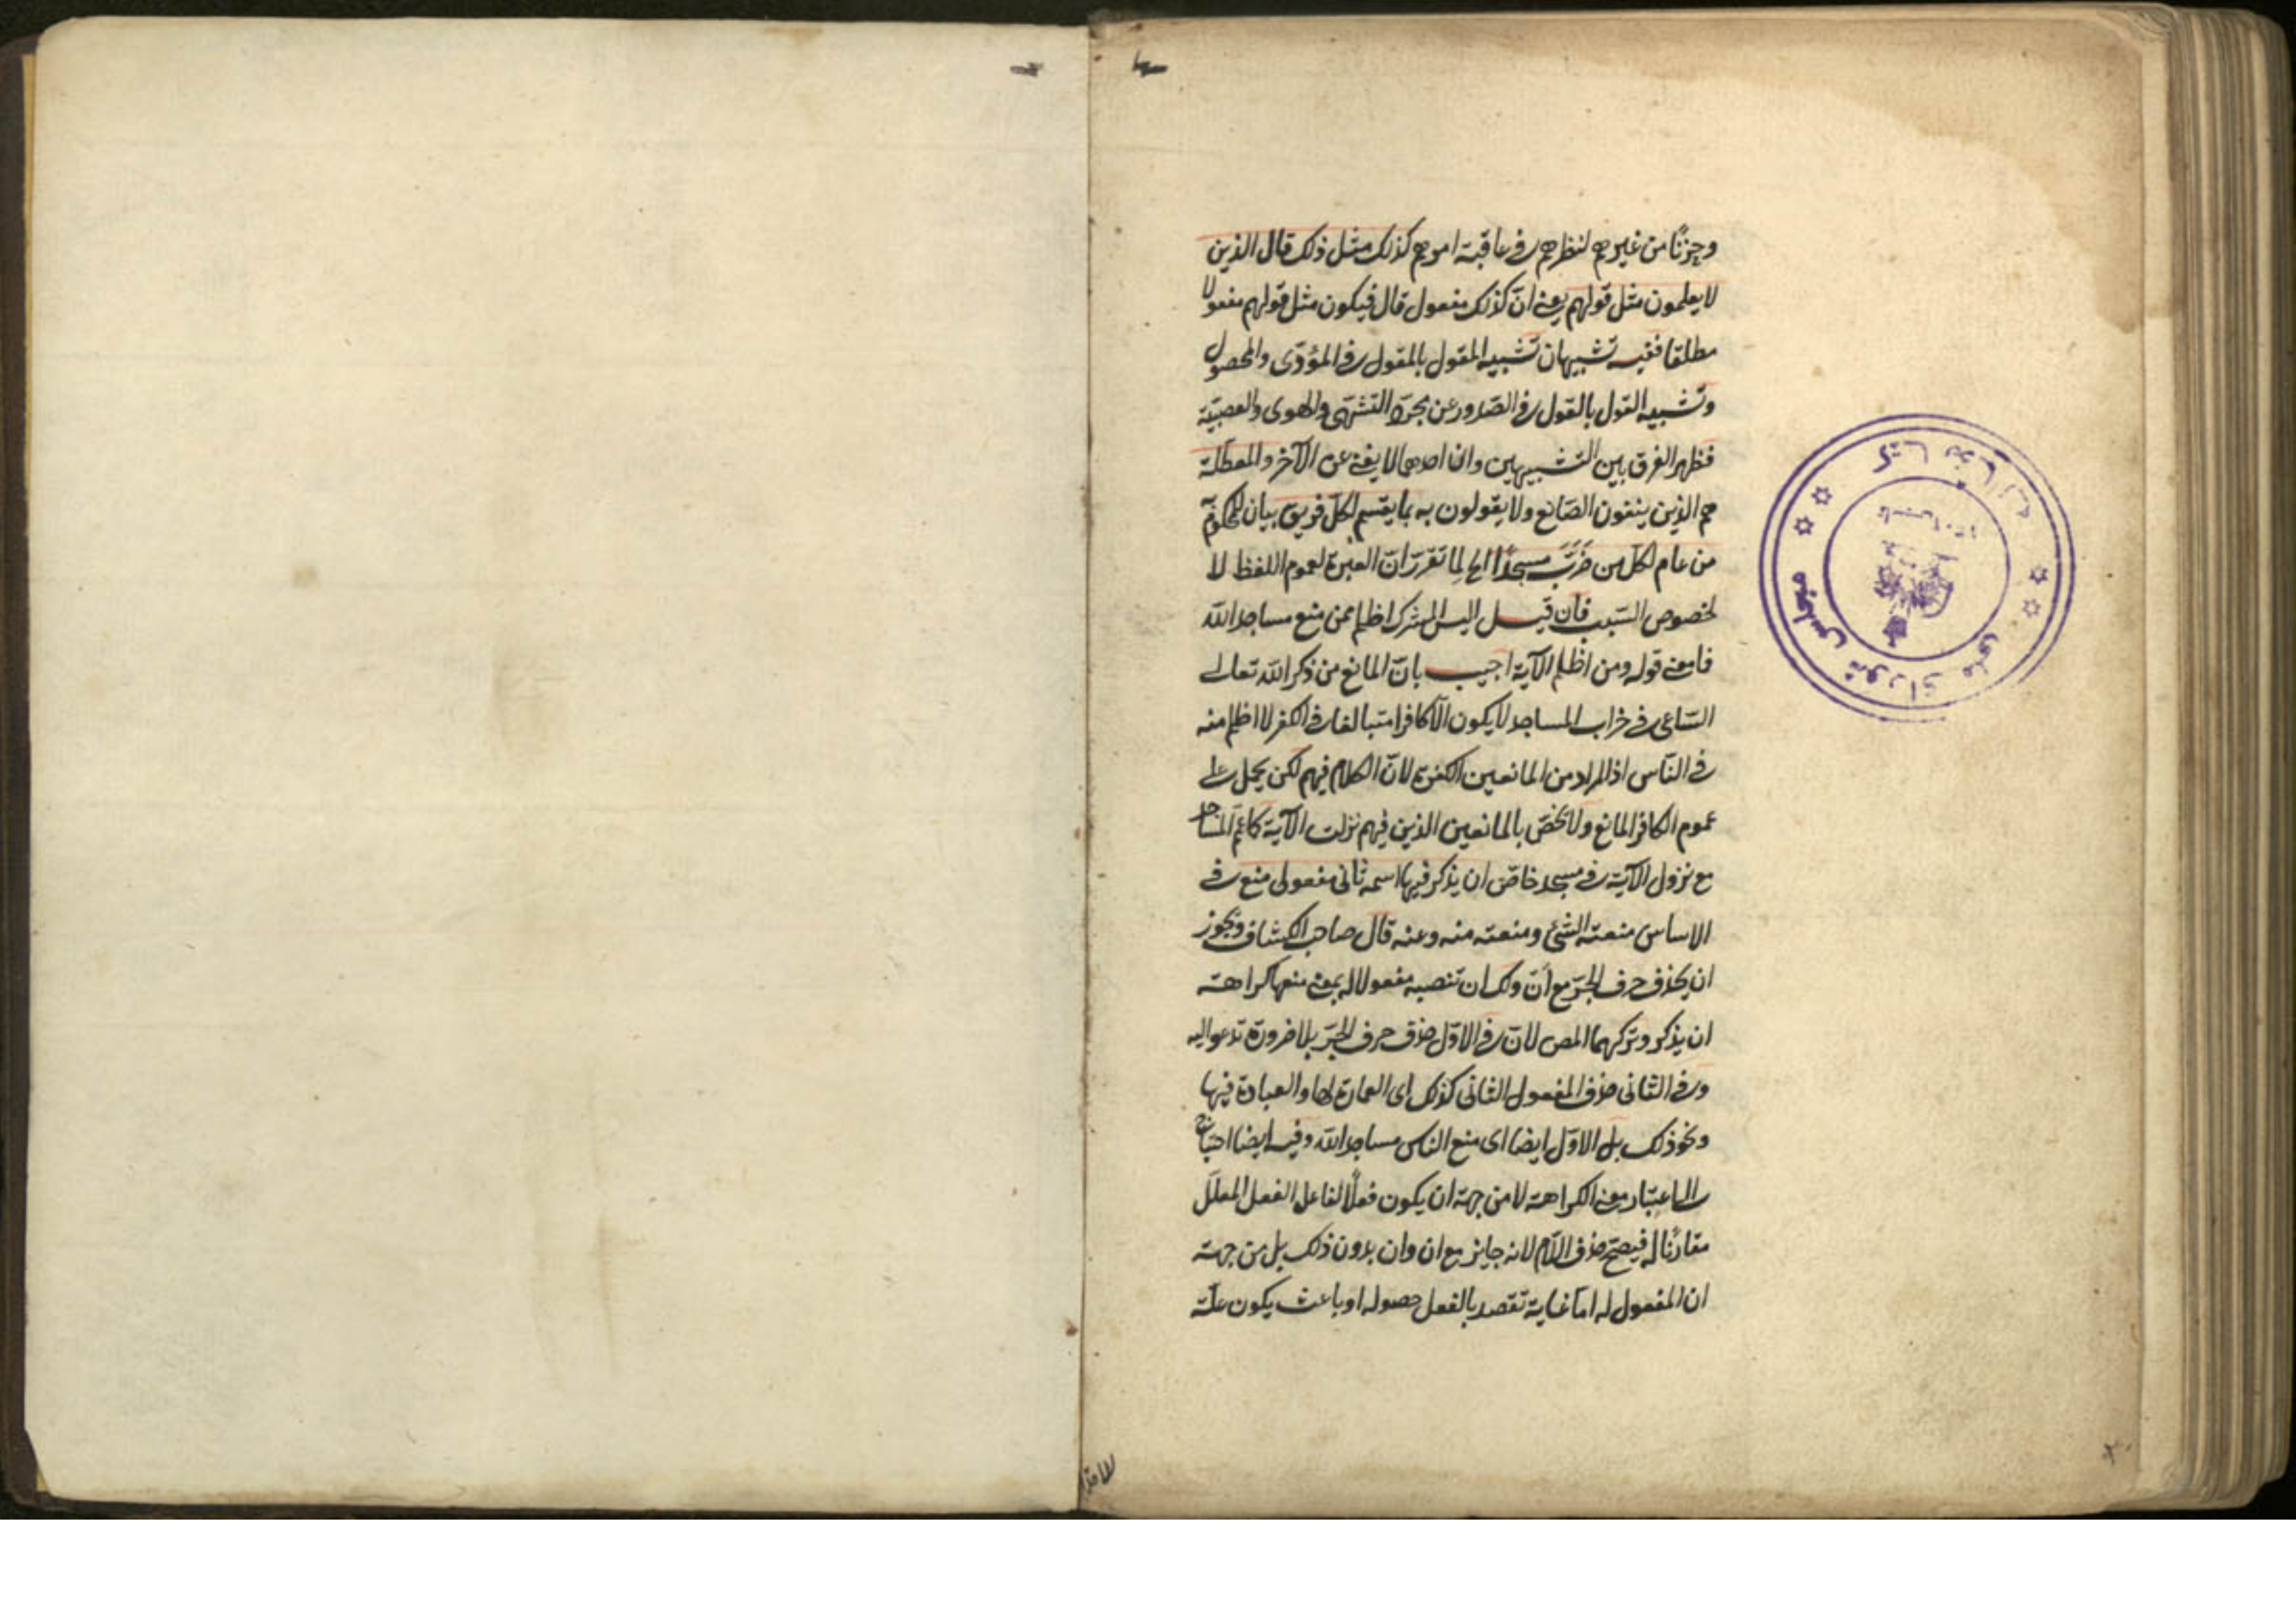 وحزنا من غيرهم لنظرهم في عاقبة امرهم كذلك مثل ذلك قال الذين
لا يعلمون مثل قولهم يعنى انّ كذلك مفعول قال فيكون مثل قولهم مفعولا
مطلقا ففيه تشبيهان تشبيه المقول بالمقول في المؤدّى والمحصول
وتشبيه القول بالقول في الصّدور عن مجرّد التشهّى والهوى والعصبيّة
فظهر الفرق بين التشبيهين وان احدهما لا يغنى عن الآخر والمعطّلة
هم الذين ينفون الصّانع ولا يقولون به بما يقسم لكلّ فريق بيان للمحكوم به
من عام لكلّ من خرّب مسجدًا الخ لِما تقرّر انّ العبرة لعموم اللفظ لا
لخصوص السّبب فان قيل اليس المشرك اظلم ممن منع مساجد الله
فما معنى قوله ومن اظلم الآية اجيب بانّ المانع من ذكر الله تعالى
السّاعى في خراب المساجد لا يكون الّا كافرا متبالغا في الكفر لا اظلم منه
في النّاس اذ المراد من المانعين الكفرة لانّ الكلام فيهم لكن يحمل على
عموم الكافر المانع ولا يخصّ بالمانعين الذين فيهم نزلت الآية كما عمّ المساجد
مع نزول الآية في مسجد خاصّ ان يذكر فيها اسمه ثانى مفعولى منع في
الاساس منعته الشئ ومنعته منه وعنه قال صاحب الكشاف ويجوز
ان يحذف حرف الجرّ مع أن ولك ان تنصبه مفعولا له بمعنى منعها كراهة
ان يذكر وتركهما المص لانّ في الاوّل حذف حرف الجرّ بلا ضرورة تدعو اليه
وفي الثانى حذف المفعول الثانى كذلك اى العمارة لها والعبادة فيها
ونحو ذلك بل الاوّل ايضا اى منع الناس مساجد الله وفيه ايضا احتياج
الى اعتبار معنى الكراهة لا من جهة ان يكون فعلًا لفاعل الفعل المعلّل
مقارنًا له فيصحّ حذف اللّام لانه جايز مع ان وان بدون ذلك بل من جهة
ان المفعول له امّا غاية تقصد بالفعل حصوله او باعث يكون علّة
مجلس شوراى ملى